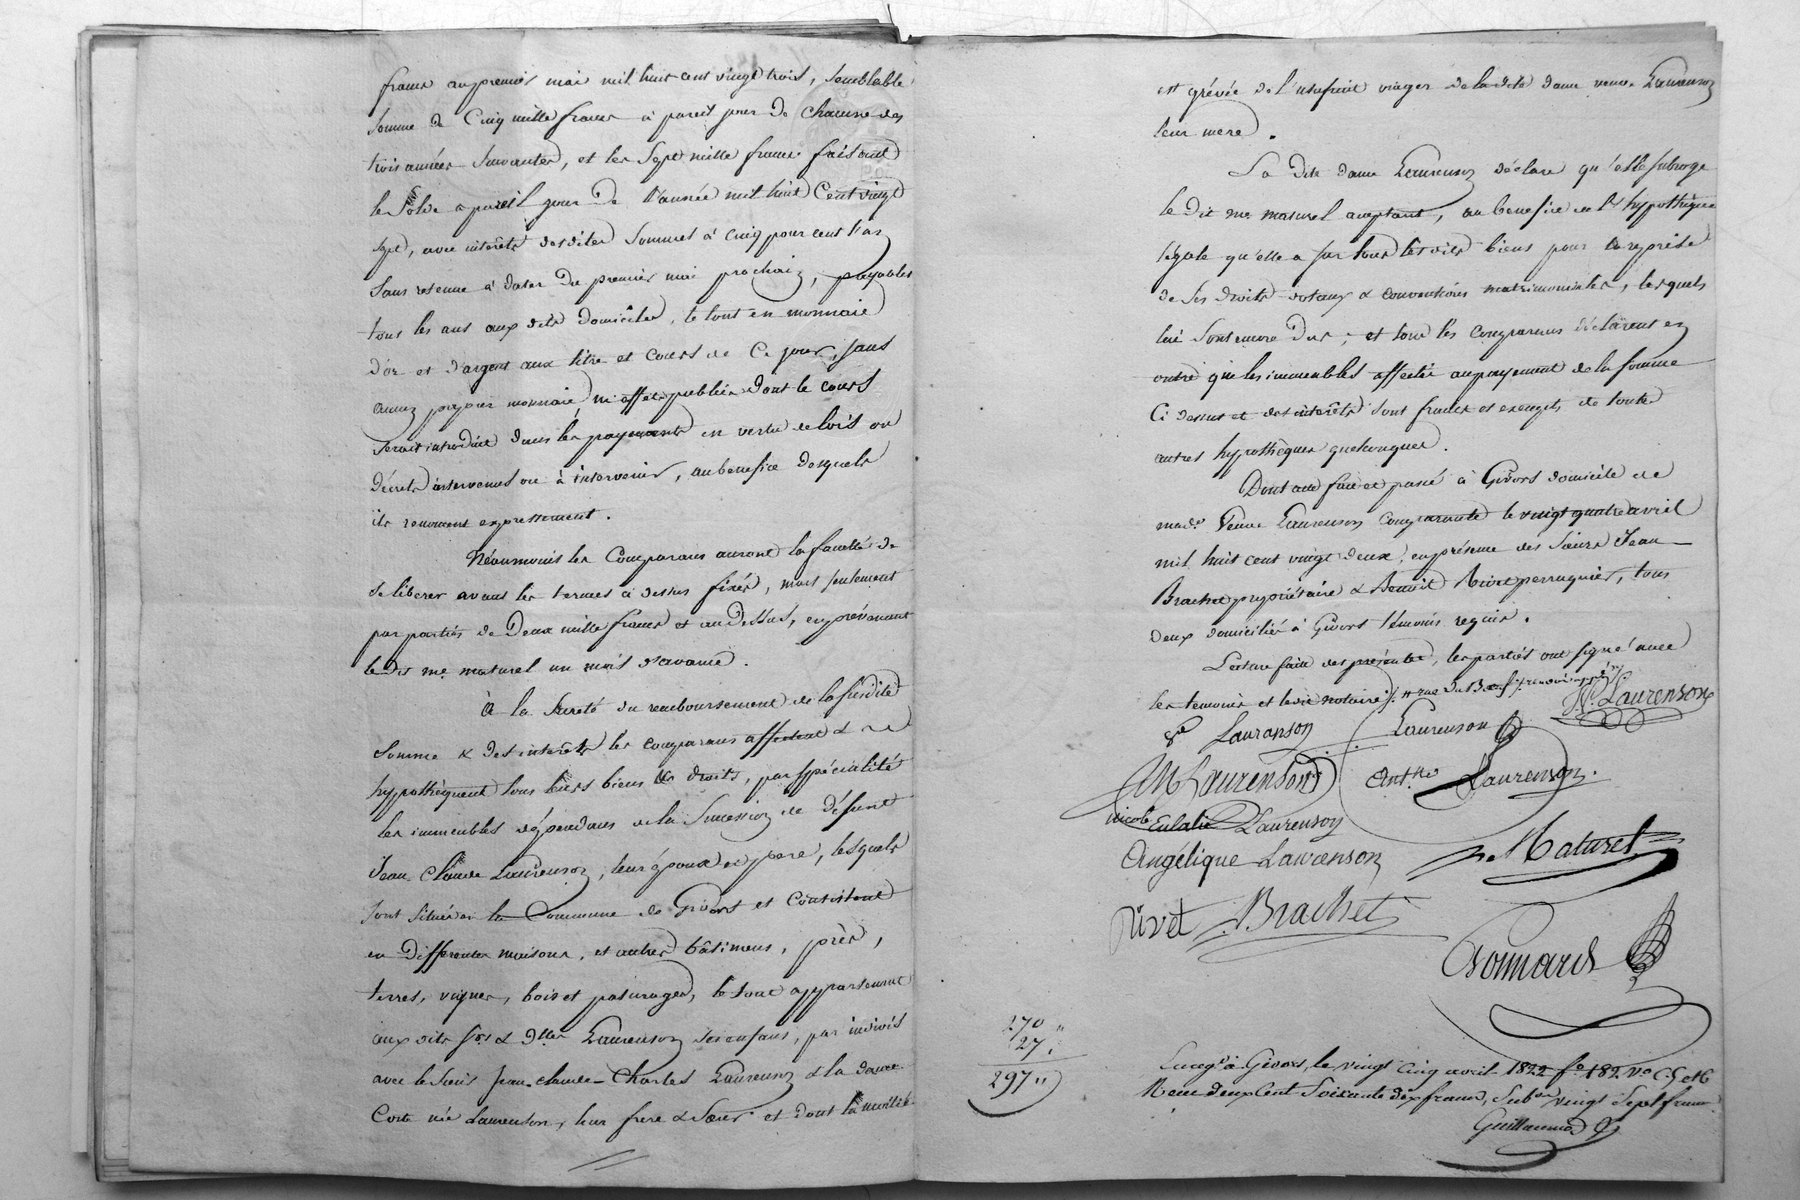 francs au premier mai mil huit cent vingt trois, semblable
somme de Cinq mille francs à pareil jour de chacune des
trois années suivantes, et les sept mille francs faisant
le solde a pareil jour de l'année mil huit Cent vingt
sept, avec intérêts desdites sommes à cinq pour cent l'an
sans retenue à dater du premier mai prochain, payables
tous les ans aux dits domiciles, le tout en monnaie
d'or et d'argent aux titre et cours de Ce jour, sans
aucun papier monnaie, ni effets publics dont le cours
serait introduit dans les payements en vertu de lois ou
décrets intervenus ou à intervenir, au benefice desquels
ils renoncent expressement.
Néanmoins les Comparans auront la faculté de
se libérer avant les termes ci dessus fixés, mais seulement
par parties de Deux mille francs et au dessus, en prévenant
le dit me. maturel un mois d'avance.
à la sureté du remboursement de la susdite
somme & des intérêts les comparans affectent &
hypothèquent tous leurs biens & droits, par spécialité
les immeubles dépendans de la Succession de défunt
Jean Claude Laurenson, leur époux et pere, lesquels
sont situés en la Commune de Givors et Consistent
en differentes maisons, et autres bâtimens, près,
terres, vignes, bois et paturages, le tout appartenant
aux dits srs & dlles Laurenson ses enfans, par indivis
avec le Sieur Jean-claude-Charles Laurenson & la dame
Coste née Laurenson, leur frere & Sœur et dont la moitié
est grévée de l'usufruit viager de ladite dame veuve Laurenson
leur mere.
La dite dame Laurenson déclare qu'elle subroge
le dit me. maturel acceptant, au benefice de l'hypothèque
légale qu'elle a sur tous lesdits biens pour la reprise
de ses droits dotaux & conventions matrimoniales, lesquels
lui sont encore dus; et tous les comparans déclarent en
outre que les immeubles affectés au payement de la somme
Ci dessus et des intérêts sont francs et exempts de toute
autres hypothèques quelconques.
Dont acte fait et passé à Givors domicile de
made. Veuve Laurenson comparante le vingt quatre avril
mil huit cent vingt deux, en présence des Sieurs Jean
Brachet propriétaire & Benoit Rivet perruquier, tous
deux domiciliés à Givors témoins requis.
Lecture faite des présentes, les parties ont signé avec
les temoins et le dit notaire
Ve Lauranson Laurenson Laurenson
Laurenson Anth. Laurenson
nicole Eulalie Laurenson
Angélique Laurenson Maturel
Rivet Brachet
Bonnard
270 "
27.
297 "
Enregé à Givors, le vingt cinq avril 1822 fo. 182 Vo C. 5 et 6
Reçu deux Cent Soixante dix francs, Subon vingt Sept francs
Guillaumod